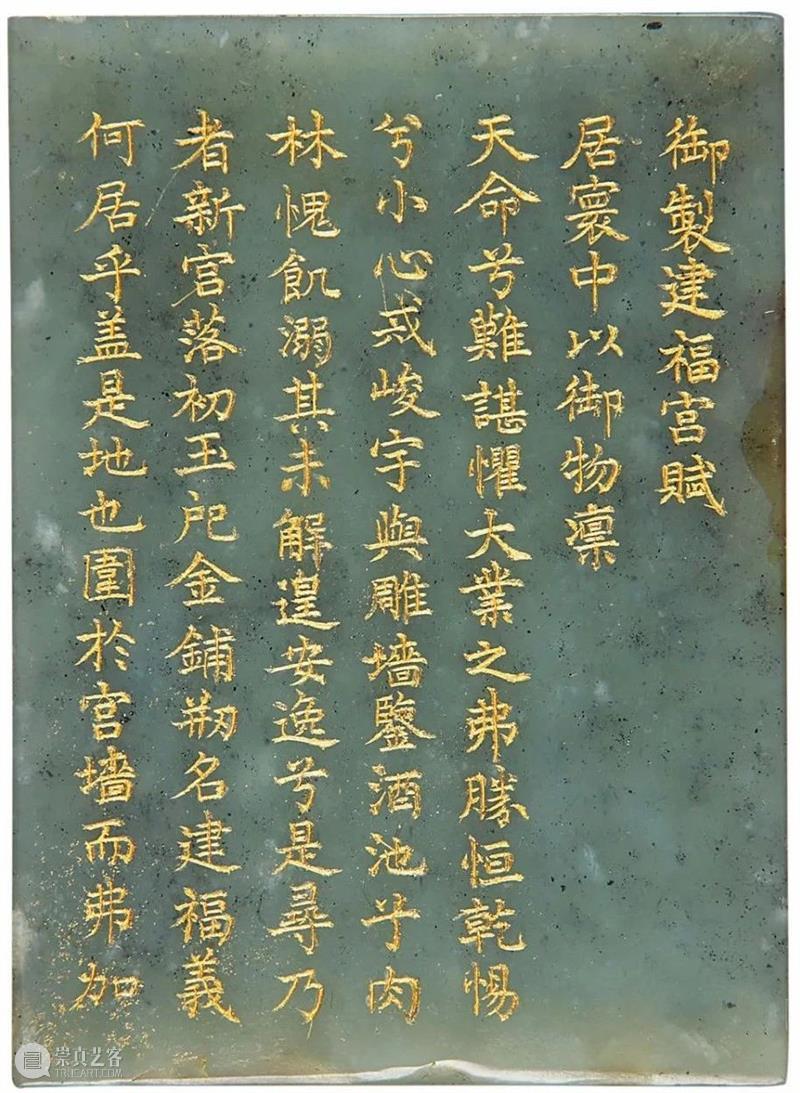 御製建福宮賦
居寰中以御物凛
天命兮難諶懼大業之弗勝恒乾惕
兮小心戒峻宇與雕墻鑒酒池兮肉
林愧飢溺其未解遑安逸兮是尋乃
者新宮落初玉戺金鋪剏名建福義
何居乎盖是地也圍於宮墻而弗加
崇真艺客
TRUEART.COM